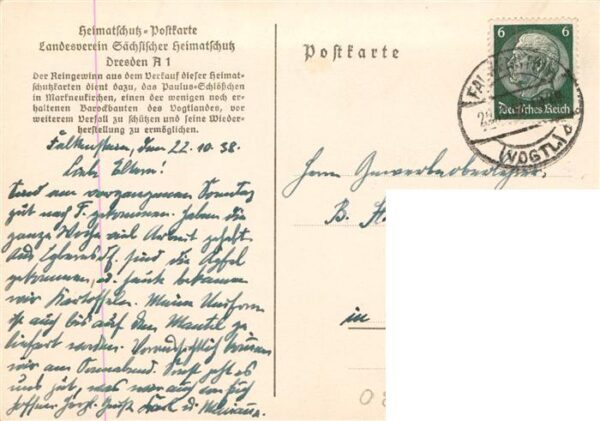 Heimatschutz-Postkarte
Landesverein Sächsischer Heimatschutz
Dresden A 1
Der Reingewinn aus dem Verkauf dieser Heimat-
schutzkarten dient dazu, das Paulus-Schlößchen
in Markneukirchen, einen der wenigen noch er-
haltenen Barockbauten des Vogtlandes, vor
weiterem Verfall zu schützen und seine Wieder-
herstellung zu ermöglichen.
Falkenstein, den 22.10.38.
Liebe Eltern!
Sind am vergangenen Sonntag
gut nach F. gekommen. Haben die
ganze Woche viel Arbeit gehabt.
Aus sind die Äpfel
gekommen, u. heute bekamen
wir Kartoffeln. Meine Uniform
ist auch bis auf den Mantel ge
liefert worden. Voraussichtlich
wir am Sonnabend. Sonst geht es
uns gut, was wir auch von Euch
hoffen. Herzl. Grüße
Postkarte
6 6
Deutsches Reich
(VOGTL)
Herrn Gewerbeoberlehrer,
B.
in